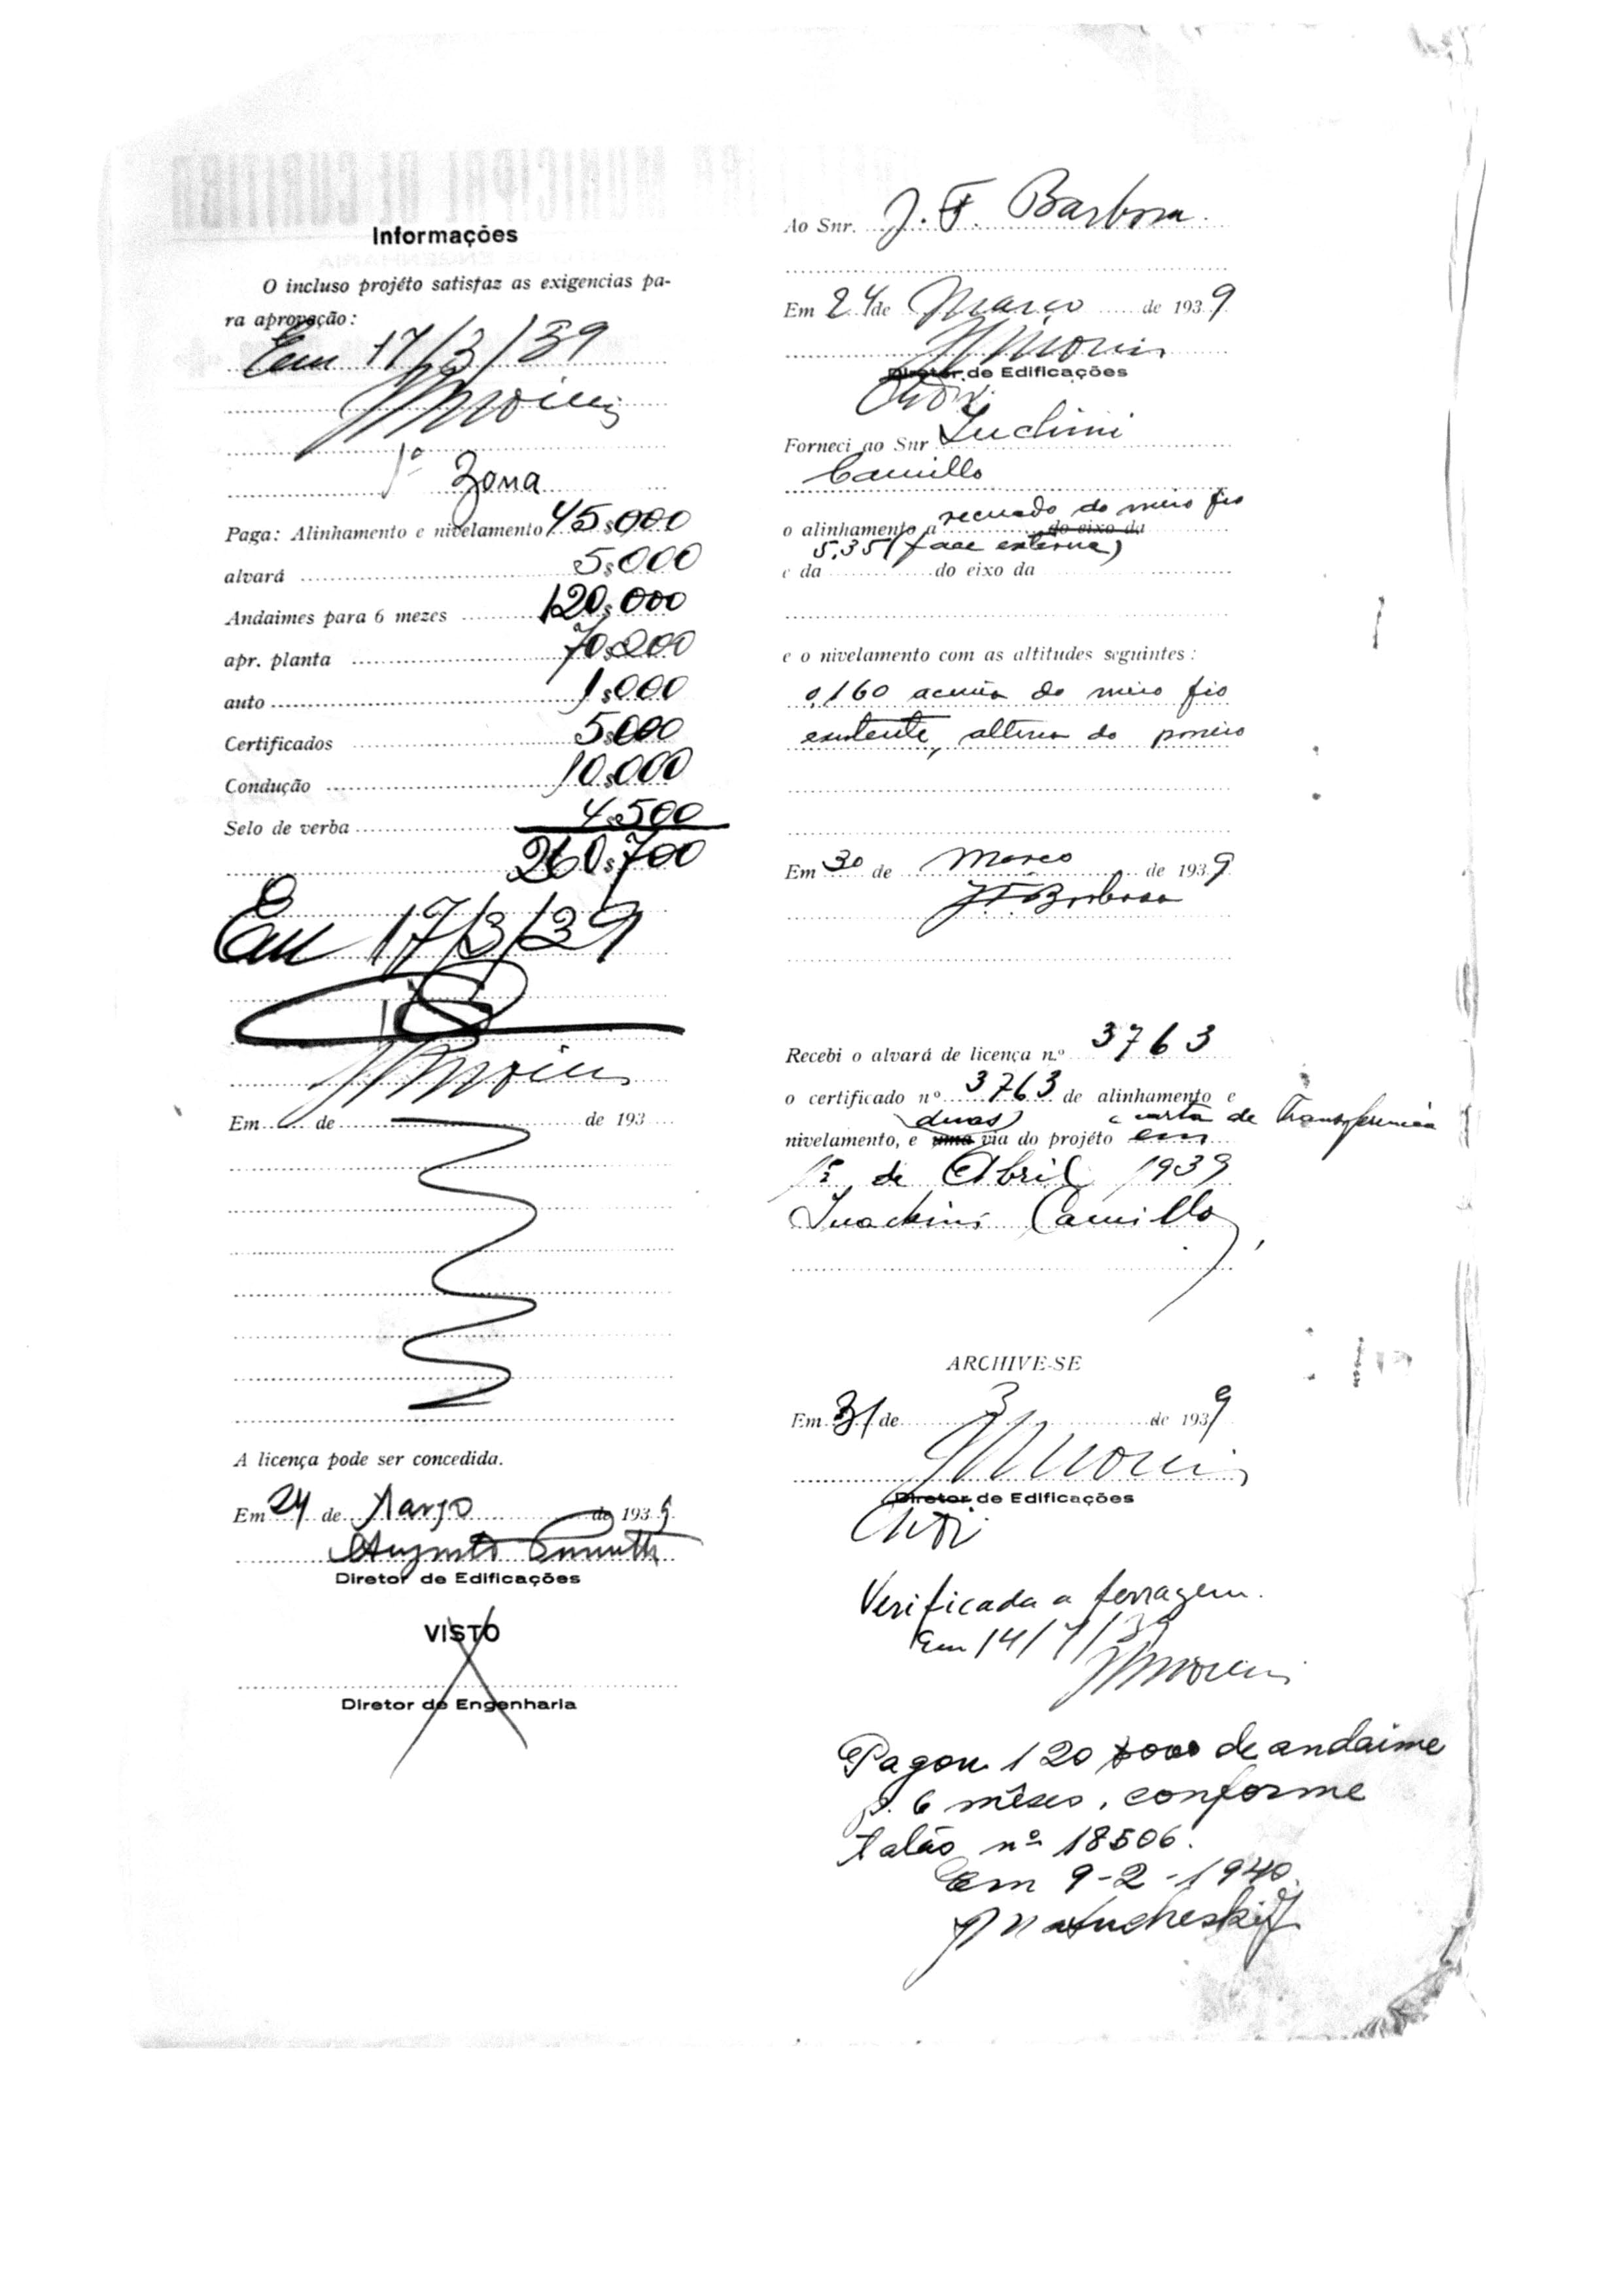 Informações
O incluso projéto satisfaz as exigencias pa-
ra aprovação:
Em 17/3/39
1ª Zona
Paga: Alinhamento e nivelamento 45$000
alvará 5$000
Andaimes para 6 mezes 120$000
apr. planta 70$200
auto 1$000
Certificados 5$000
Condução 10$000
Selo de verba 4$500
260$700
Em 17/3/39
Em de de 193
A licença pode ser concedida.
Em 24 de Março de 1939
Augusto
Diretor de Edificações
VISTO
Diretor de Engenharia
Ao Snr. J. F. Barbosa.
Em 24 de Março de 1939
Diretor de Edificações
Forneci ao Snr Luchini
Camillo
o alinhamento a recuado do meio fio do eixo da
5,35 (face externa)
e da do eixo da
e o nivelamento com as altitudes seguintes:
0,160 acima do meio fio
existente, altura do
Em 30 de Março de 1939
J. F. Barbosa
Recebi o alvará de licença n.º 3763
o certificado nº 3763 de alinhamento e
(duas) e carta de Transferencia
nivelamento, e uma via do projéto em
1º de Abril 1939
Camillo
ARCHIVE-SE
Em 31 de 3 de 1939
Diretor de Edificações
Verificada a ferragem.
Em 14/7/39
Pagou 120$000 de andaime
p. 6 mêses, conforme
talão nº 18506.
Em 9-2-1940.